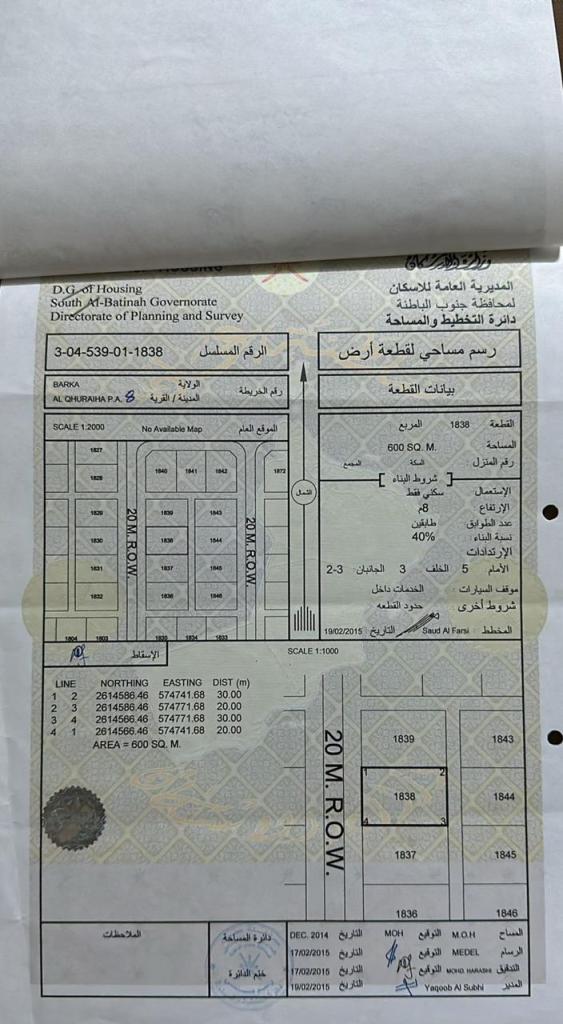 D.G. of Housing
South Al-Batinah Governorate
Directorate of Planning and Survey
المديرية العامة للاسكان
لمحافظة جنوب الباطنة
دائرة التخطيط والمساحة
3-04-539-01-1838 الرقم المسلسل
رسم مساحي لقطعة أرض
BARKA الولاية
AL QHURAIHA P.A. 8 المدينة / القرية
رقم الخريطة
بيانات القطعة
SCALE 1:2000 No Available Map الموقع العام
1827
1828
1829
1830
1831
1832
1804 1803
20 M. R.O.W.
1840 1841 1842
1839 1843
1838 1844
1837 1845
1836 1846
1834 1833
20 M. R.O.W.
1872
الشمال
القطعة 1838 المربع
المساحة 600 SQ. M.
رقم المنزل : السكة المجمع
شروط البناء
الإستعمال سكني فقط
الإرتفاع 8م
عدد الطوابق طابقين
نسبة البناء : 40%
الإرتدادات
الأمام 5 الخلف 3 الجانبان: 3-2
موقف السيارات : الخدمات داخل
شروط أخرى : حدود القطعه
المخطط : Saud Al Farsi التاريخ 19/02/2015
الإسقاط
SCALE 1:1000
LINE NORTHING EASTING DIST (m)
1 2 2614586.46 574741.68 30.00
2 3 2614586.46 574771.68 20.00
3 4 2614566.46 574771.68 30.00
4 1 2614566.46 574741.68 20.00
AREA = 600 SQ. M.
20 M. R.O.W.
1839 1843
1 2
1838 1844
4 3
1837 1845
1836 1846
الملاحظات
دائرة المساحة
ختم الدائرة
المساح M.O.H التوقيع MOH التاريخ DEC. 2014
الرسام MEDEL التوقيع التاريخ 17/02/2015
التدقيق MOHD. HARASHI التوقيع التاريخ 17/02/2015
المدير Yaqoob Al Subhi التاريخ 19/02/2015